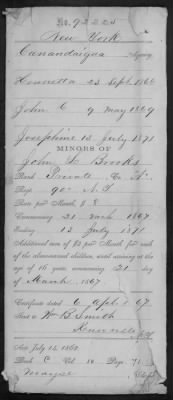 No. 92224
New York
Canandaigua Agency.
Henrietta 23 Sept 1866
John C 9 May 1869
Josephine 13 July 1871
MINORS OF
John Brooks
Rank Private Co. "K"
Regt. 90" N.Y.
Rate per month $ 8
Commencing 21 March 1867
Ending 12 July 1871
Additional sum of $2 per month for each
of the above-named children, until arriving at the
age of 16 years, commencing 21 day
of March 1867.
Certificate dated 6 April 67
Sent to Wm B. Smith
N.Y.
Act July 14, 1862.
Book C Vol. 10 Page 71
Clerk